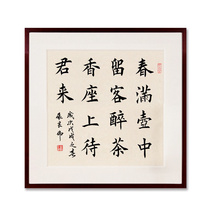 春滿壺中
留客醉茶
香座上待
君来
歲次戊戌之春